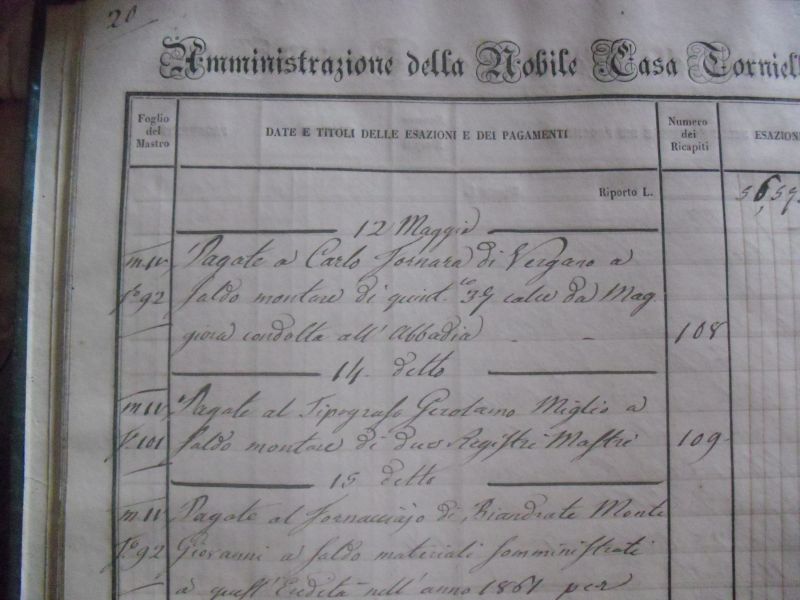 20
Amministrazione della Nobile Casa Torniell
Foglio del Mastro
DATE E TITOLI DELLE ESAZIONI E DEI PAGAMENTI
Numero dei Ricapiti
ESAZION
Riporto L.
12 Maggio
Pagate a Carlo Fornara di Vergano a
f.o 92 saldo montare di quint. 39 calce da Mag
giora condotta all' Abbadia - - 108
14 detto
Pagate al Tipografo Girolamo Miglio a
f.o 101 saldo montare di due Registri Mastri 109
15 detto
Pagate al Fornacciajo di Biandrate Monte
f.o 92 Giovanni a saldo materiali somministrati
a quest'Eredità nell'anno 1861 per